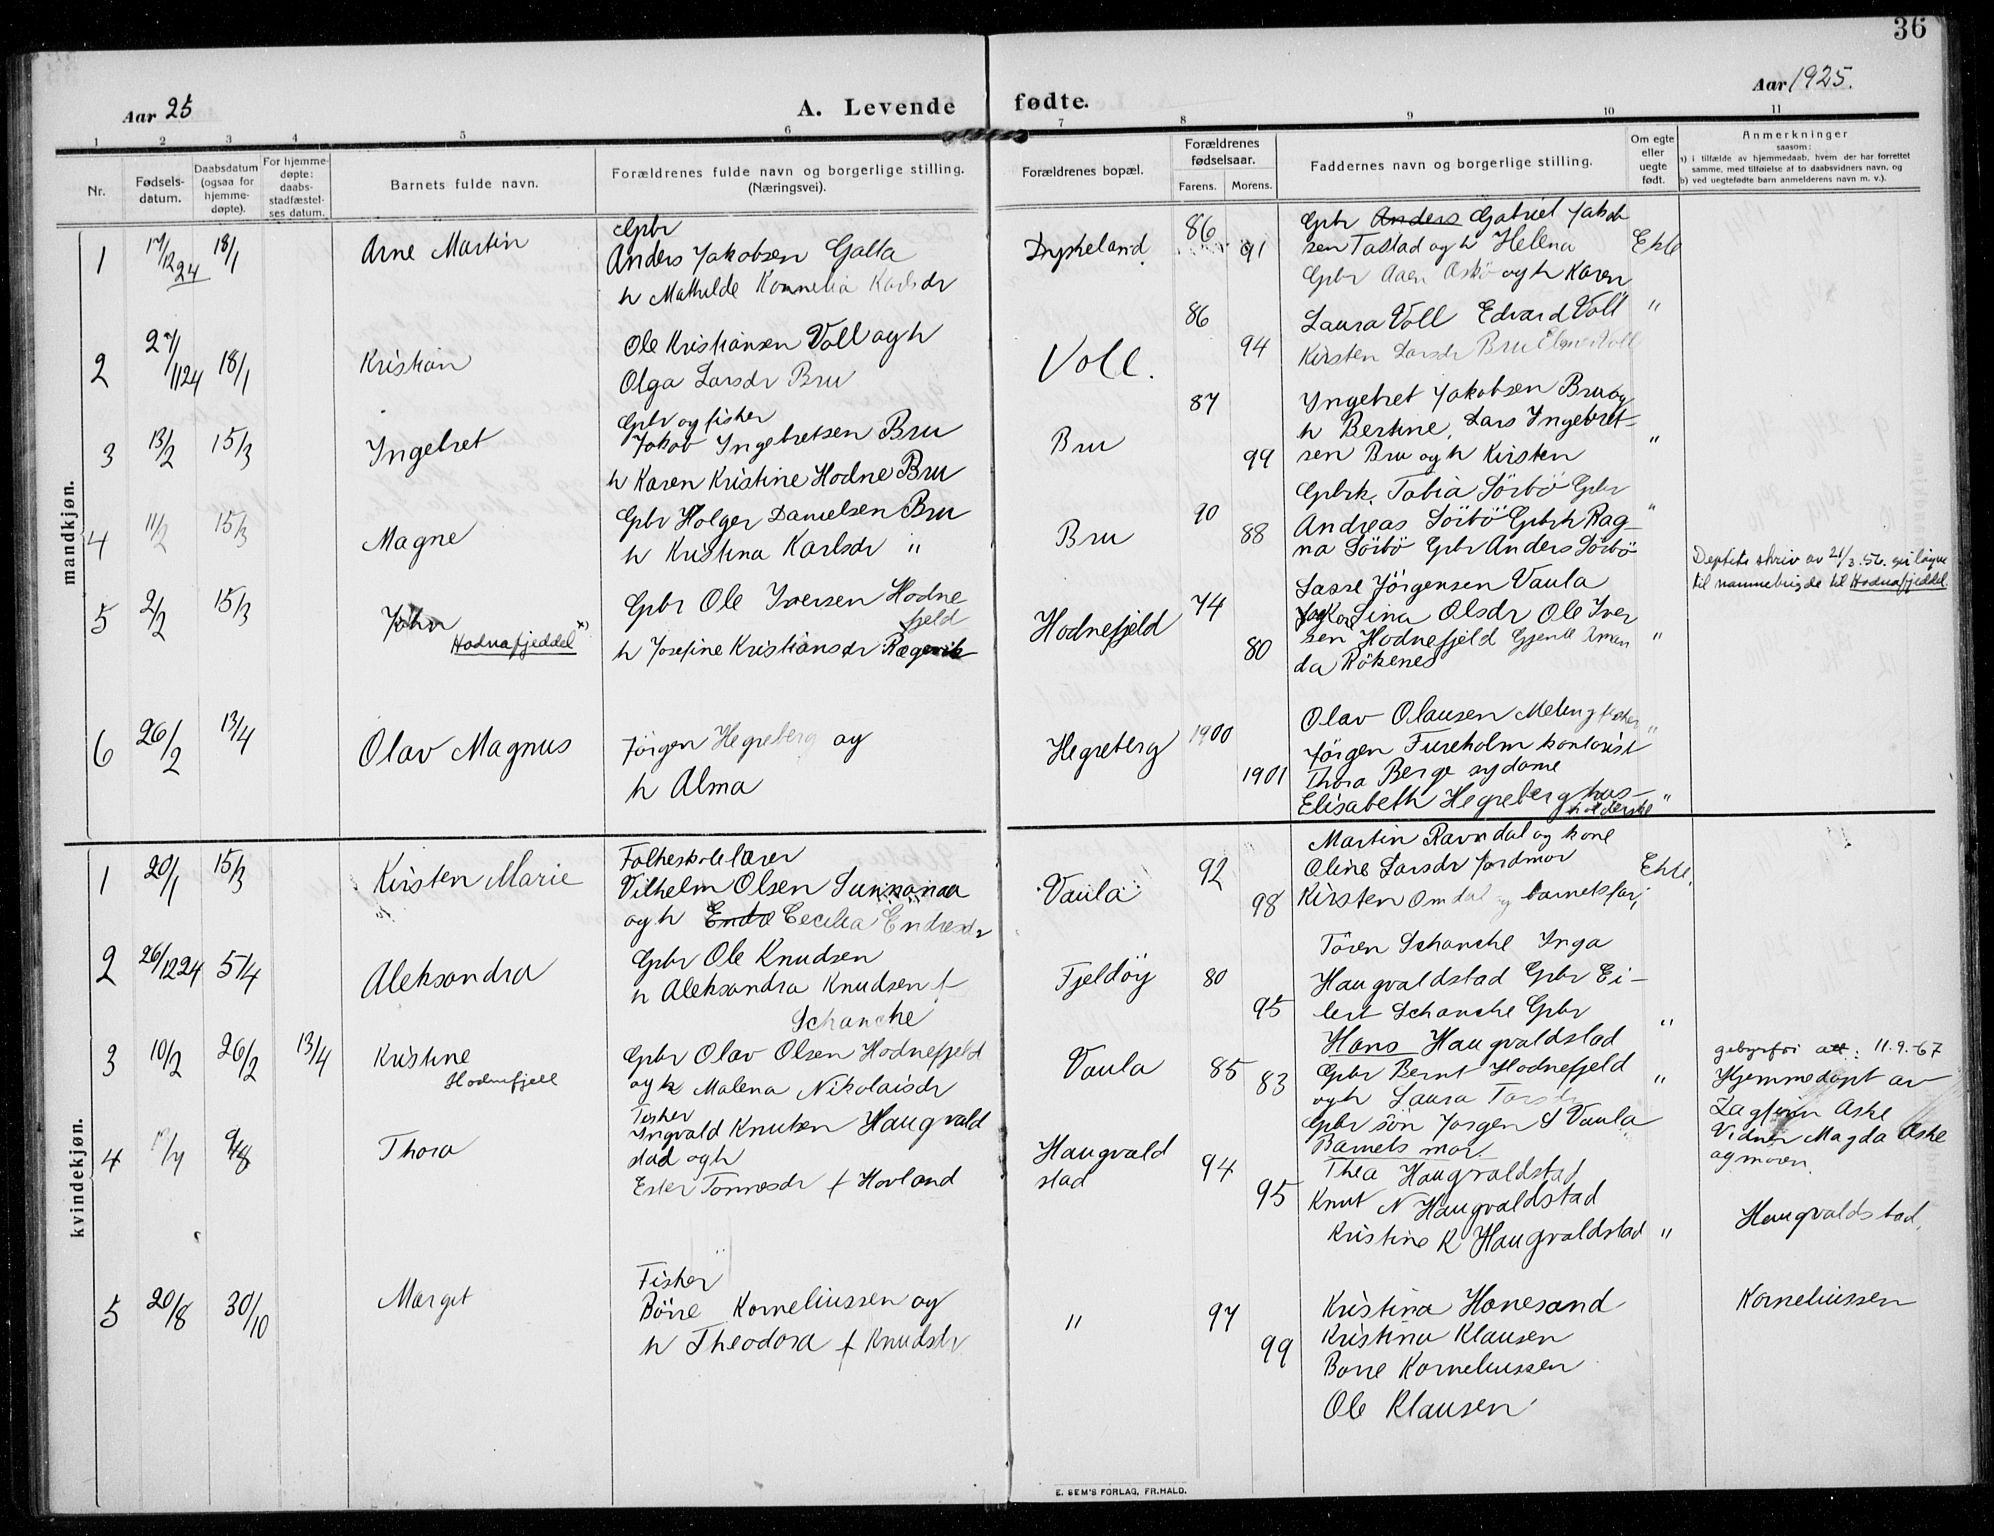 36
Aar 25
A. Levende fødte.
Aar 1925.
1 2 3 4 5 6 7 8 9 10 11
Nr.
Fødsels-
datum.
Daabsdatum
(ogsaa for
hjemme-
døpte).
For hjemme-
døpte:
daabs-
stadfæstel-
ses datum.
Barnets fulde navn.
Forældrenes fulde navn og borgerlige stilling.
(Næringsvei).
Forældrenes bopæl.
Forældrenes
fødselsaar.
Farens. Morens.
Faddernes navn og borgerlige stilling.
Om egte
eller
uegte
født.
Anmerkninger
saasom:
a) i tilfælde av hjemmedaab, hvem der har forrettet
samme, med tilføielse af to daabsvidners navn, og
b) ved uegtefødte barn anmelderens navn m. v.).
mandkjøn.
1 17/12 24 18/1 Arne Martin
Gpbr
Anders Jakobsen Galta
h Mathilde Kornelia Karlsdr
Dysjeland 86 91
Gpbr Anders Gabriel Jakob
sen Tastad og h Helena
Gpbr Aaen Askø og h Karen
Ekte
2 27/11 24 18/1 Kristian
Ole Kristiansen Voll og h
Olga Larsdr Bru
Voll. 86 94
Laura Voll Edvard Voll "
Kirsten Larsdr Bru Voll
3 13/2 15/3 Ingebret
Gpbr og fisker
Jakob Ingebretsen Bru
h Karen Kristine Hodne Bru
Bru 87 99
Ingebret Jakobsen Bru og
h Bertine, Lars Ingebret-
sen Bru og h Kirsten "
4 11/2 15/3 Magne
Gpbr Holger Danielsen Bru
h Kristina Karlsdr "
Bru 90 88
Gpbrk. Tobia Sörbö Gpbr
Andreas Sörbö Gpbrk Rag- "
na Sörbö Gpbr Anders Sörbö
5 2/2 15/3 John
Hodnafjeddel x)
Gpbr Ole Iversen Hodne
fjeld
h Josefine Kristiansdr Rægevik
Hodnefjeld 74 80
Lasse Jörgensen Vaula
Lina Olsdr Ole Iver
sen Hodnefjeld Gjente Aman "
da Rökenes
Deptets skriv av 21/3.56. gir løyve
til namnebrigde til Hodnafjeddel.
6 26/2 13/4 Olav Magnus
Jörgen Hegreberg og
h Alma
Hegreberg 1900 1901
Olav Olausen Meling fisker "
Jörgen Fureholm kontorist
Thora Berge sydame
Elisabeth Hegreberg hus-
holderske "
kvindekjøn.
1 20/1 15/3 Kirsten Marie
Folkeskolelærer
Vilhelm Olsen Sunnanaa
og h Endre Cecilia Endresdr
Vaula 92 98
Martin Ravndal og kone
Oline Larsdr jordmor
Kirsten Omdal og barnets far,
Ekte.
2 26/12 24 5/4 Aleksandra
Gpbr Ole Knudsen
h Aleksandra Knudsen f
Schanche
Fjeldöy 80 95
Tören Schanche Inga
Haugvaldstad Gpbr Ei-
lert Schanche Gpbr
Hans Haugvaldstad "
3 10/2 26/2 13/4 Kristine
Hodnefjell
Gpbr Olav Olsen Hodnefjeld
og h Malena Nikolaisdr
Vaula 85 83
Gpbr Bernt Hodnefjeld
og h Laura "
Gpbr sön Jørgen S Vaula
Barnets mor.
gebyrfri att: 11.9.-67
Hjemmedöpt av
Dagfinn Aske
Vidner Magda Aske
og moren.
4 9/8 Thora
Fisker
Ingvald Knutsen Haugvald
stad og h
Ester Tönnesdr f Hovland
Haugvald
stad 94 95
Thea Haugvaldstad
Knut N Haugvaldstad
Kristine K Haugvaldstad "
Haugvaldstad,
5 20/8 30/10 Marget
Fisker
Börre Korneliussen og
h Theodora f Knudsdr
" 97 99
Kristina Hanesand
Kristina Klausen
Börre Korneliussen
Ole Klausen
Korneliussen
E. SEM'S FORLAG, FR.HALD.